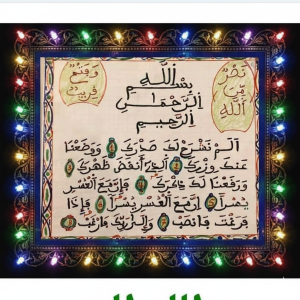 نصر
من
الله
وفتح
قريب
بسم الله
الرحمن
الرحيم
الم نشرح لك صدرك ووضعنا
عنك وزرك الذى انقض ظهرك
ورفعنا لك ذكرك فان مع العسر
يسرا ان مع العسر يسرا فاذا
فرغت فانصب والى ربك فارغب